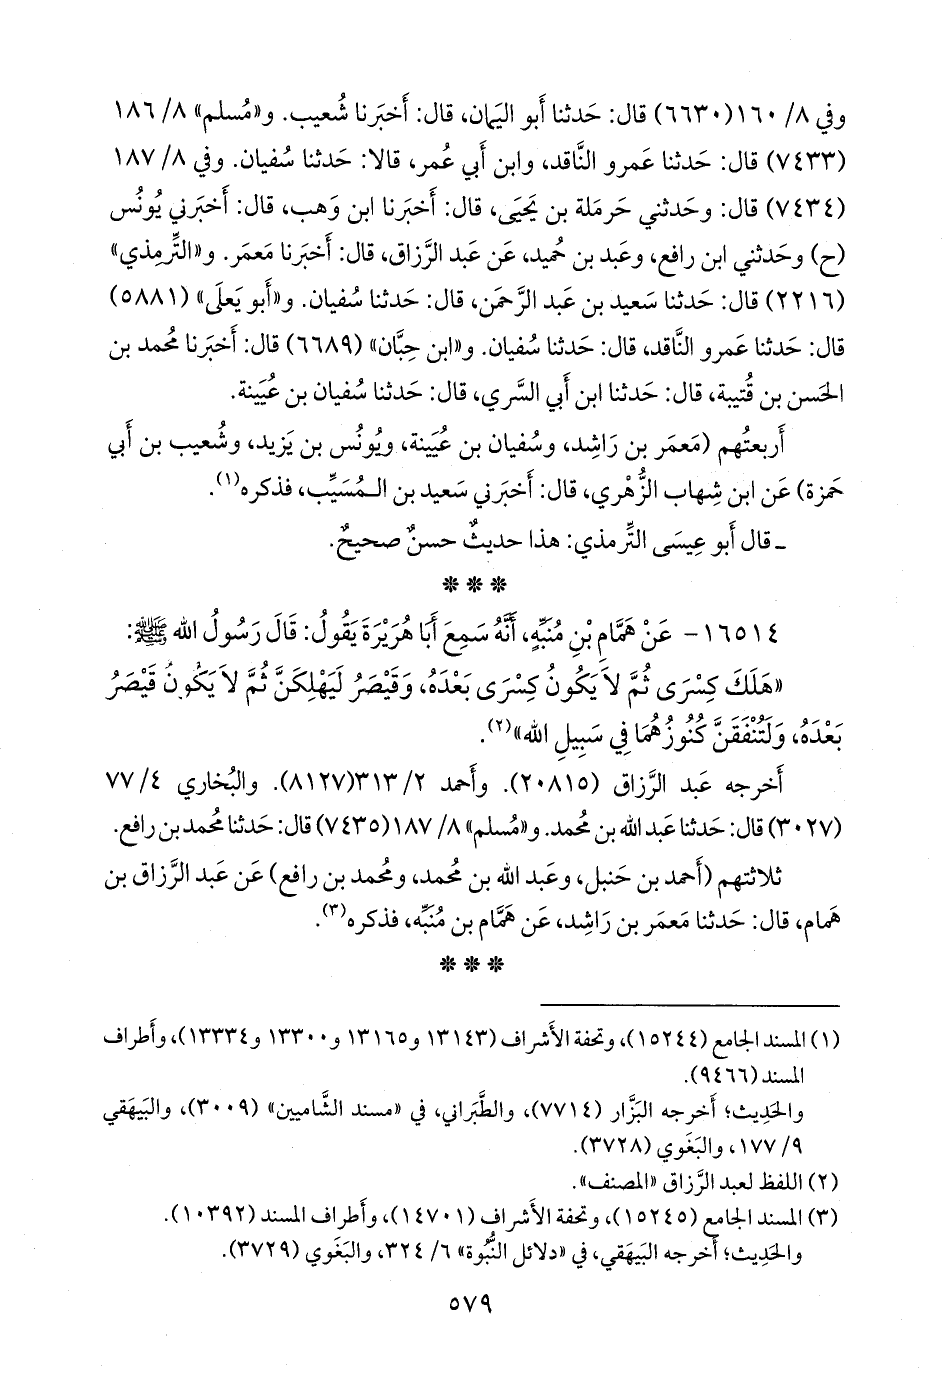 وفي ٨/ ١٦٠(٦٦٣٠) قال: حَدثنا أَبو اليمان، قال: أَخبَرنا شُعيب. و«مُسلم» ٨/ ١٨٦
(٧٤٣٣) قال: حَدثنا عَمرو النَّاقد، وابن أَبي عُمر، قالا: حَدثنا سُفيان. وفي ٨/ ١٨٧
(٧٤٣٤) قال: وحَدثني حَرملة بن يَحيَى، قال: أَخبَرنا ابن وَهب، قال: أَخبَرني يُونُس
(ح) وحَدثني ابن رافع، وعَبد بن حُميد، عَن عَبد الرَّزاق، قال: أَخبَرنا مَعمَر. و«التِّرمِذي»
(٢٢١٦) قال: حَدثنا سَعيد بن عَبد الرَّحمَن، قال: حَدثنا سُفيان. و«أَبو يَعلَى» (٥٨٨١)
قال: حَدثنا عَمرو النَّاقد، قال: حَدثنا سُفيان. و«ابن حِبَّان» (٦٦٨٩) قال: أَخبَرنا مُحمد بن
الحَسن بن قُتيبة، قال: حَدثنا ابن أَبي السَّري، قال: حَدثنا سُفيان بن عُيَينة.
أَربعتُهم (مَعمَر بن رَاشِد، وسُفيان بن عُيَينة، ويُونُس بن يَزيد، وشُعيب بن أَبي
حَمزة) عَن ابن شِهاب الزُّهْري، قال: أَخبَرني سَعيد بن الـمُسَيِّب، فذكره(١).
ـ قال أَبو عِيسَى التِّرمذي: هذا حديثٌ حسنٌ صحيحٌ.
* * *
١٦٥١٤- عَنْ هَمَّامِ بْنِ مُنَبِّهٍ، أَنَّهُ سَمِعَ أَبَا هُرَيْرَةَ يَقُولُ: قَالَ رَسُولُ الله ﷺ:
«هَلَكَ كِسْرَى ثُمَّ لاَ يَكُونُ كِسْرَى بَعْدَهُ، وَقَيْصَرُ لَيَهْلِكَنَّ ثُمَّ لاَ يَكُونُ قَيْصَرُ
بَعْدَهُ، وَلَتُنْفَقَنَّ كُنُوزُهُمَا فِي سَبِيلِ الله»(٢).
أَخرجه عَبد الرَّزاق (٢٠٨١٥). وأَحمد ٢/ ٣١٣(٨١٢٧). والبُخاري ٤/ ٧٧
(٣٠٢٧) قال: حَدثنا عَبد الله بن مُحمد. و«مُسلم» ٨/ ١٨٧(٧٤٣٥) قال: حَدثنا مُحمد بن رافع.
ثلاثتهم (أَحمد بن حَنبل، وعَبد الله بن مُحمد، ومُحمد بن رافع) عَن عَبد الرَّزاق بن
هَمام، قال: حَدثنا مَعمَر بن رَاشِد، عَن هَمَّام بن مُنَبِّه، فذكره(٣).
* * *
(١) المسند الجامع (١٥٢٤٤)، وتحفة الأَشراف (١٣١٤٣ و١٣١٦٥ و١٣٣٠٠ و١٣٣٣٤)، وأَطراف
المسند (٩٤٦٦).
والحَدِيث؛ أَخرجه البَزَّار (٧٧١٤)، والطَّبَراني، في «مسند الشَّاميين» (٣٠٠٩)، والبَيهَقي
٩/ ١٧٧، والبَغَوي (٣٧٢٨).
(٢) اللفظ لعبد الرَّزاق «المصنف».
(٣) المسند الجامع (١٥٢٤٥)، وتحفة الأَشراف (١٤٧٠١)، وأَطراف المسند (١٠٣٩٢).
والحَدِيث؛ أَخرجه البَيهَقي، في «دلائل النُّبوة» ٦/ ٣٢٤، والبَغَوي (٣٧٢٩).
٥٧٩